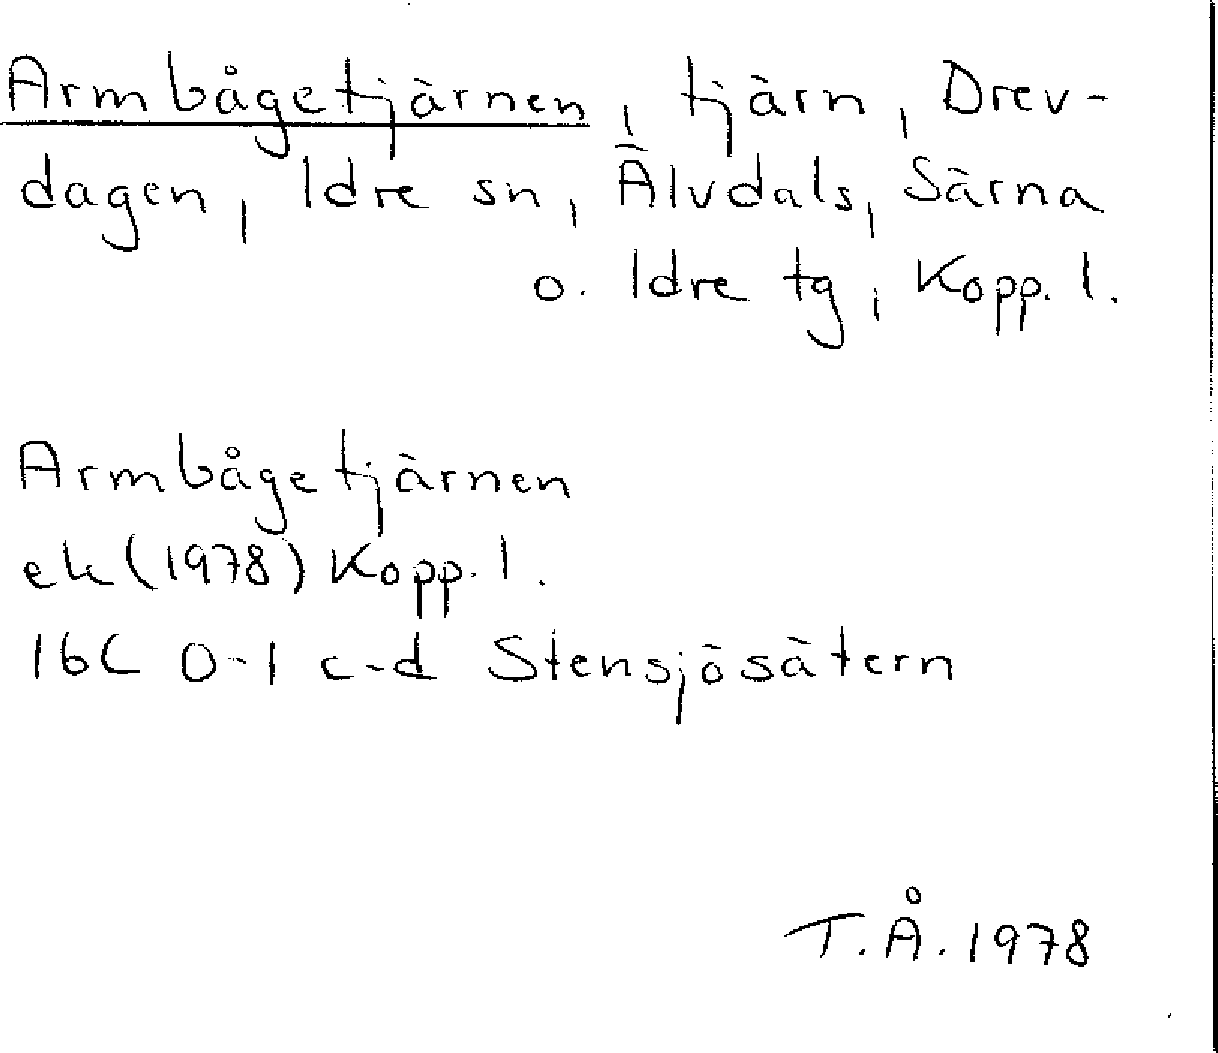 Armbågetjärnen, tjärn, Drev-
dagen, Idre sn, Älvdals, Särna
o. Idre tg, Kopp. l.
Armbågetjärnen
ek (1978) Kopp. l.
16C 0-1 c-d Stensjösätern
T.Å. 1978